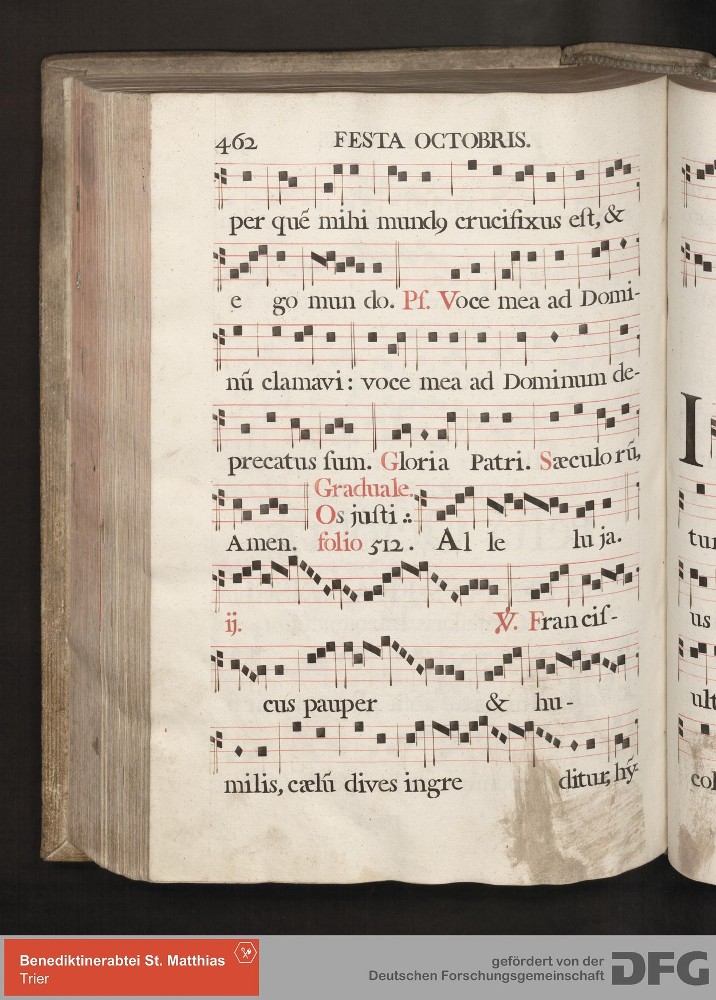 462 FESTA OCTOBRIS.
per quē mihi mundꝰ crucifixus eſt, &
e go mun do. Pſ. Voce mea ad Domi-
nū clamavi: voce mea ad Dominum de-
precatus ſum. Gloria Patri. Sæculo rū,
Graduale.
Os juſti .:
Amen. folio 512. Al le lu ja.
ij. ℣. Fran ciſ-
cus pauper & hu-
milis, cælū dives ingre ditur, hÿ-
I
tur
us
ult
col
Benediktinerabtei St. Matthias
Trier
gefördert von der
Deutschen Forschungsgemeinschaft DFG